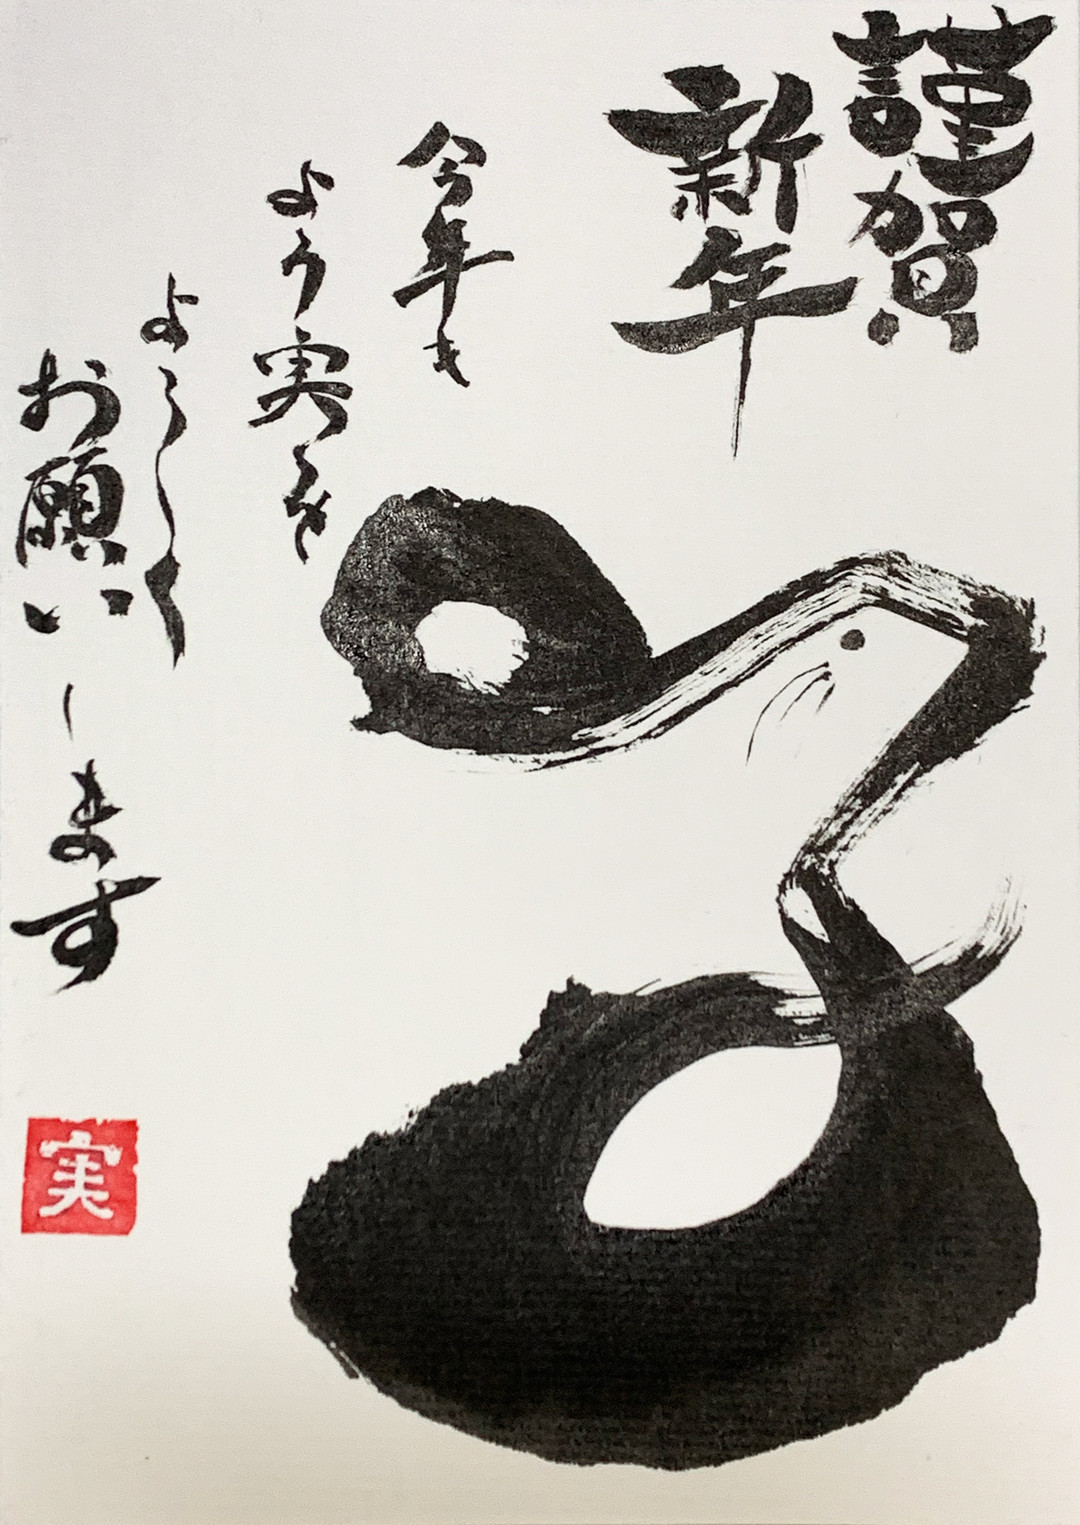 謹賀
新年
今年も
よう実を
よろしく
お願いします
実